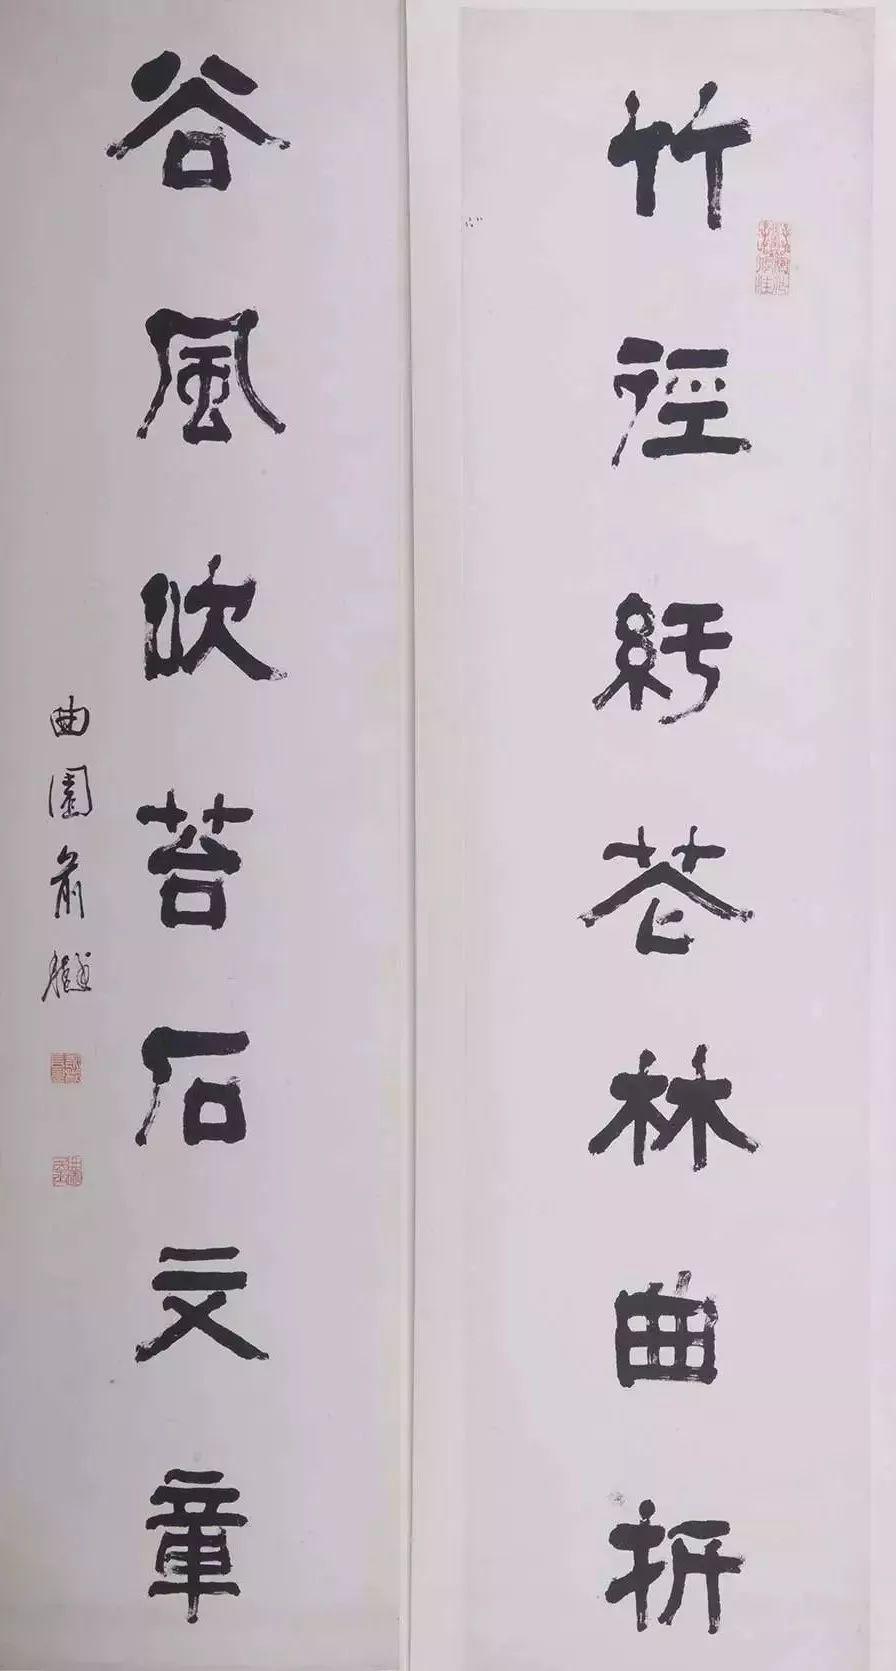 竹徑紆花林曲折
谷風吹苔石文章
曲園俞樾